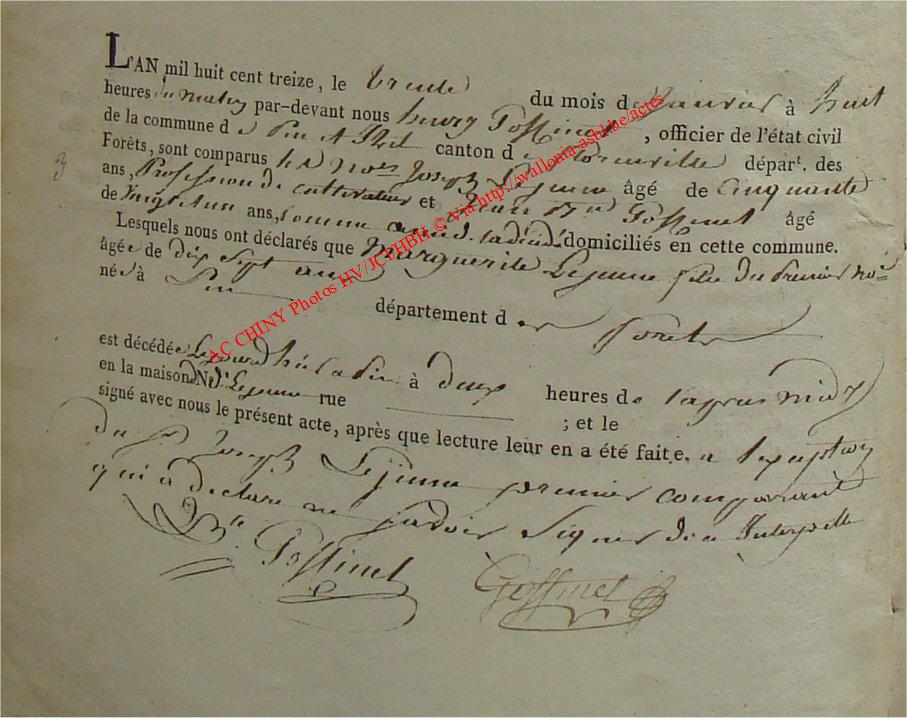 L'AN mil huit cent treize, le trente du mois de Janvier à huit
heures du matin par-devant nous henry Gossinet, officier de l'état civil
de la commune de Pin et Izel canton de florenville départ. des
Forêts, sont comparus Joseph Lejeune âgé de Cinquante
ans, Profession de cultivateur et Jean Gossinet âgé
de vingt et un ans, comme domiciliés en cette commune.
Lesquels nous ont déclarés que Marguerite Lejeune fille du Premier
âgée de dix sept ans
née à Pin département des forets
est décédée à Pin à deux heures de l'apres midy
en la maison N° Lejeune rue ; et le
signé avec nous le présent acte, après que lecture leur en a été faite. a l'exeption
du Joseph Lejeune premier comparant
qui a declaré ne savoir Signer de ce Interpellé
Gossinet Gossinet
3
AC CHINY Photos HV/JCP/HBH © Via http://wallonia-asbl.be/actes